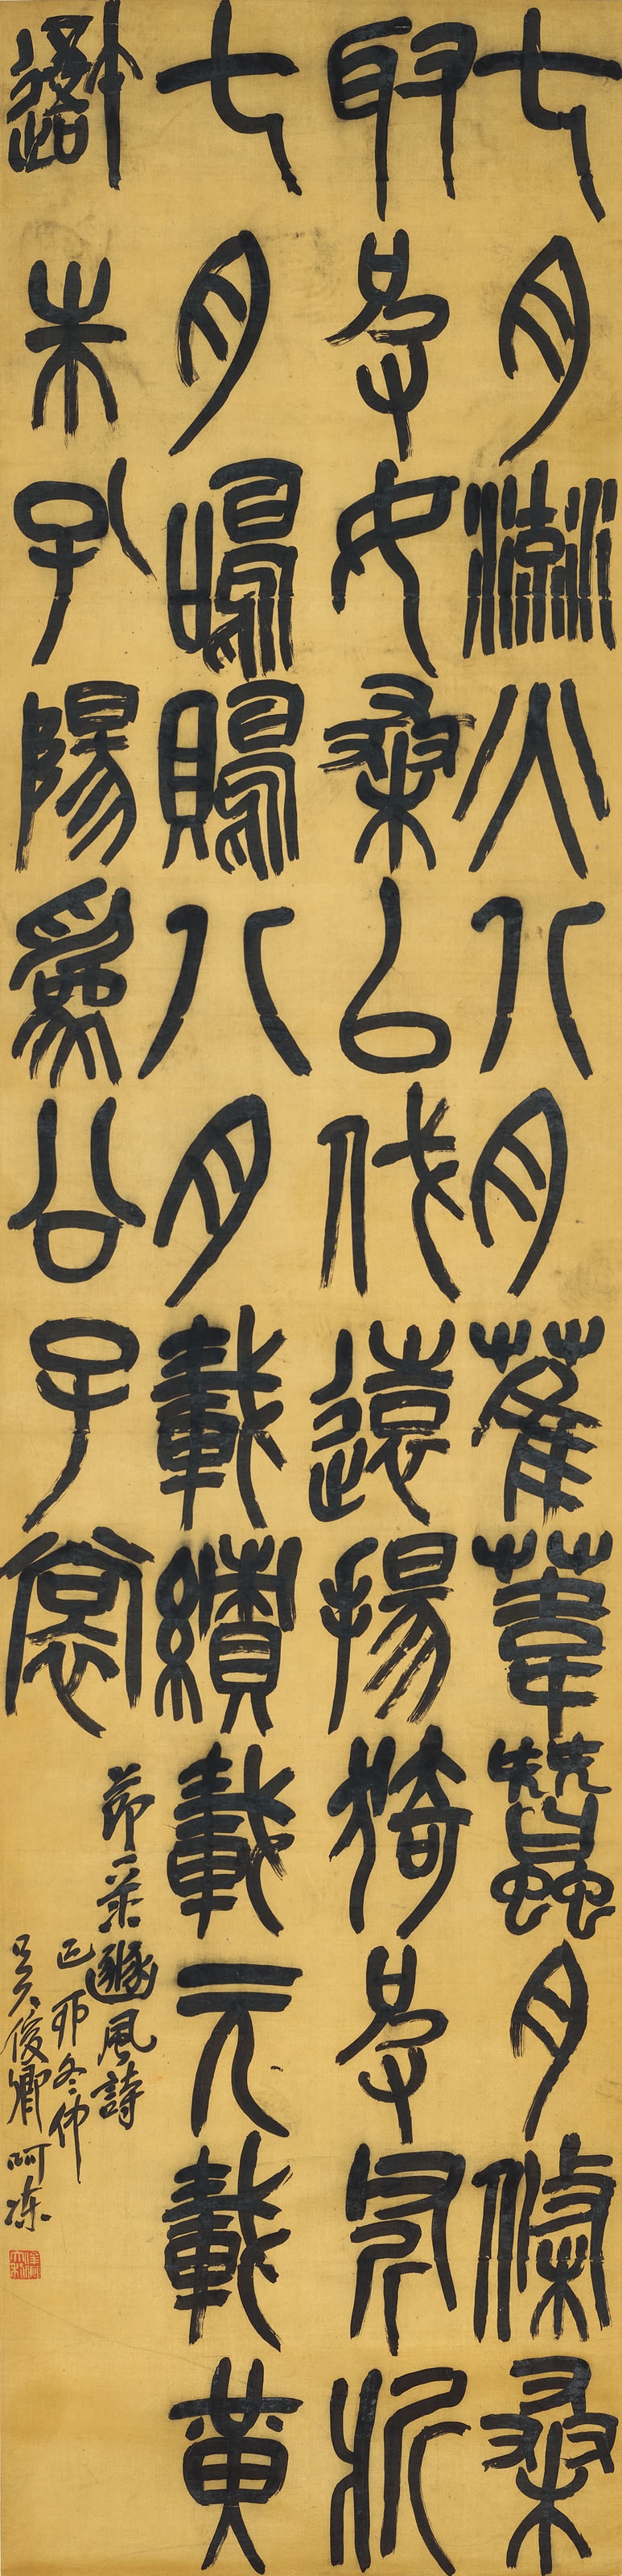 七月流火八月萑葦蠶月條桑
取彼女桑以伐遠揚猗彼斧斨
七月鳴鵙八月載績載元載黃
朱孔陽為公子裳
節录豳風詩
卯冬仲
吳俊卿呵凍